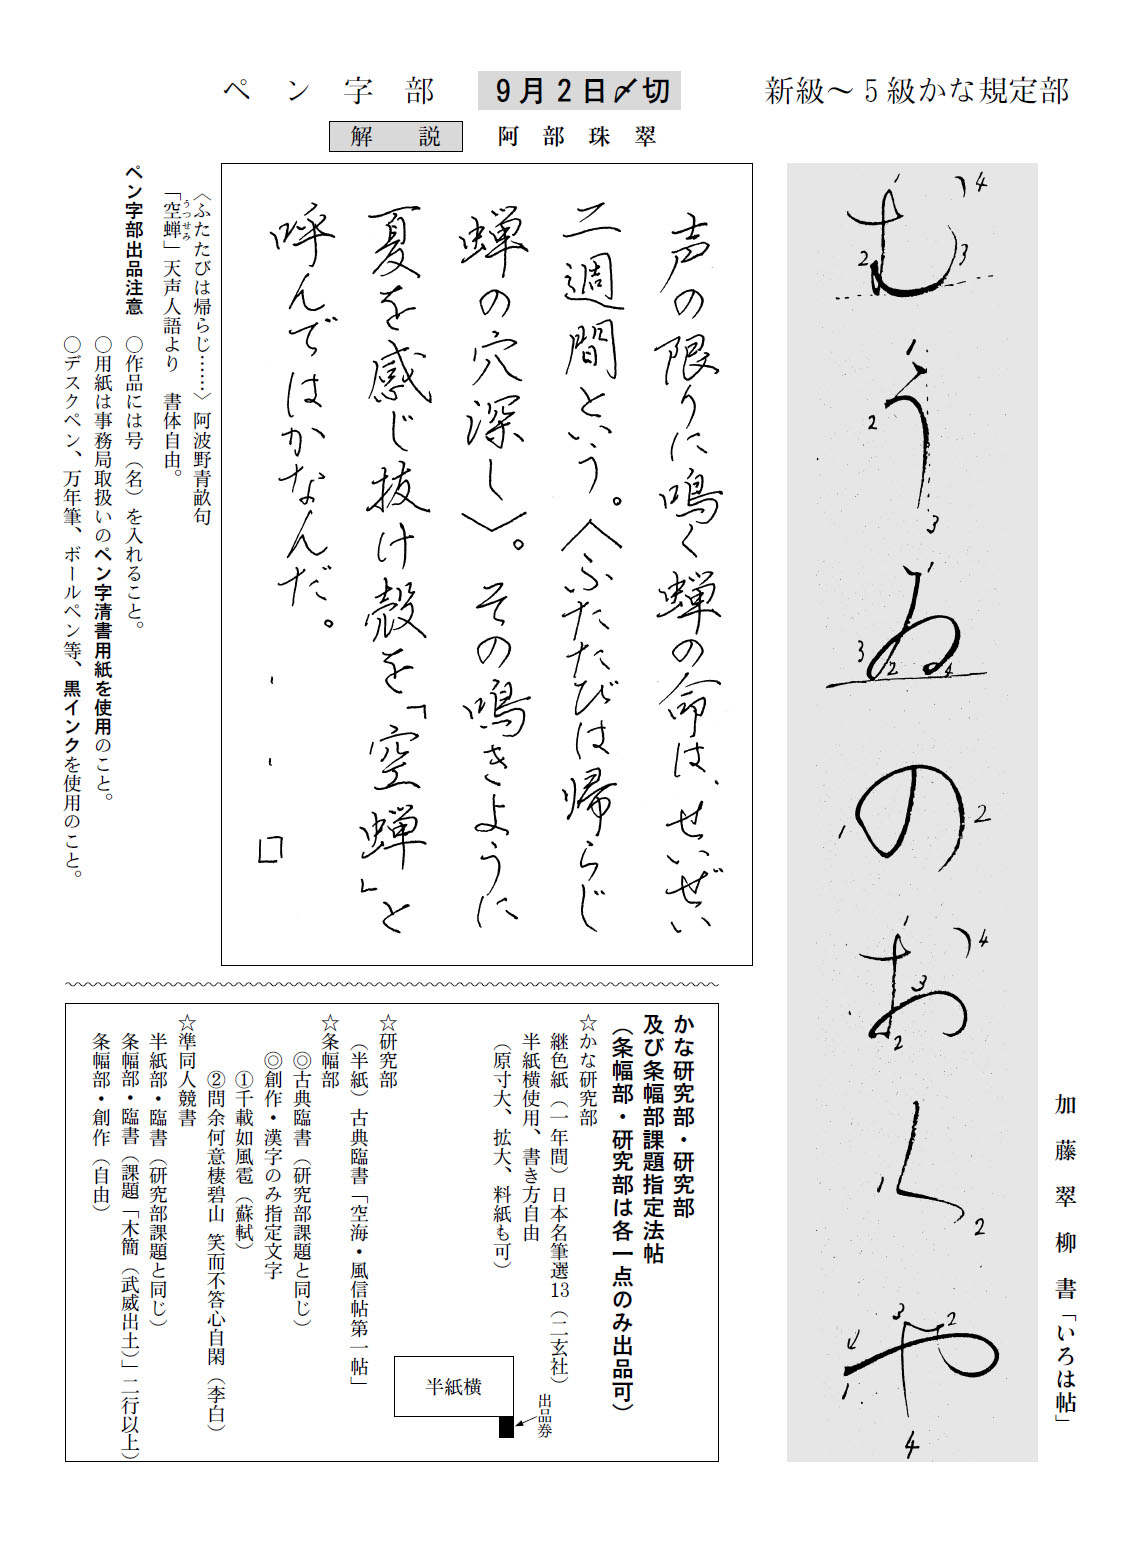 ペン字部
9月2日〆切
新級～5級かな規定部
解説
阿部珠翠
加藤翠柳書「いろは帖」
むうゐのおくや
声の限りに鳴く蝉の命は、せいぜい
二週間という。〈ふたたびは帰らじ
蝉の穴深し〉。その鳴きように
夏を感じ抜け殻を「空蝉」と
呼んではかなんだ。
〈ふたたびは帰らじ……〉阿波野青畝句
「空蝉」天声人語より 書体自由。
うつせみ
ペン字部出品注意 ○作品には号（名）を入れること。
○用紙は事務局取扱いのペン字清書用紙を使用のこと。
○デスクペン、万年筆、ボールペン等、黒インクを使用のこと。
かな研究部・研究部
及び条幅部課題指定法帖
（条幅部・研究部は各一点のみ出品可）
☆かな研究部
継色紙（一年間）日本名筆選13（二玄社）
半紙横使用、書き方自由
（原寸大、拡大、料紙も可）
半紙横
出品券
☆研究部
（半紙）古典臨書「空海・風信帖第一帖」
☆条幅部
◎古典臨書（研究部課題と同じ）
◎創作・漢字のみ指定文字
①千載如風雹（蘇軾）
②問余何意棲碧山 笑而不答心自閑（李白）
☆準同人競書
半紙部・臨書（研究部課題と同じ）
条幅部・臨書（課題「木簡（武威出土）」二行以上）
条幅部・創作（自由）